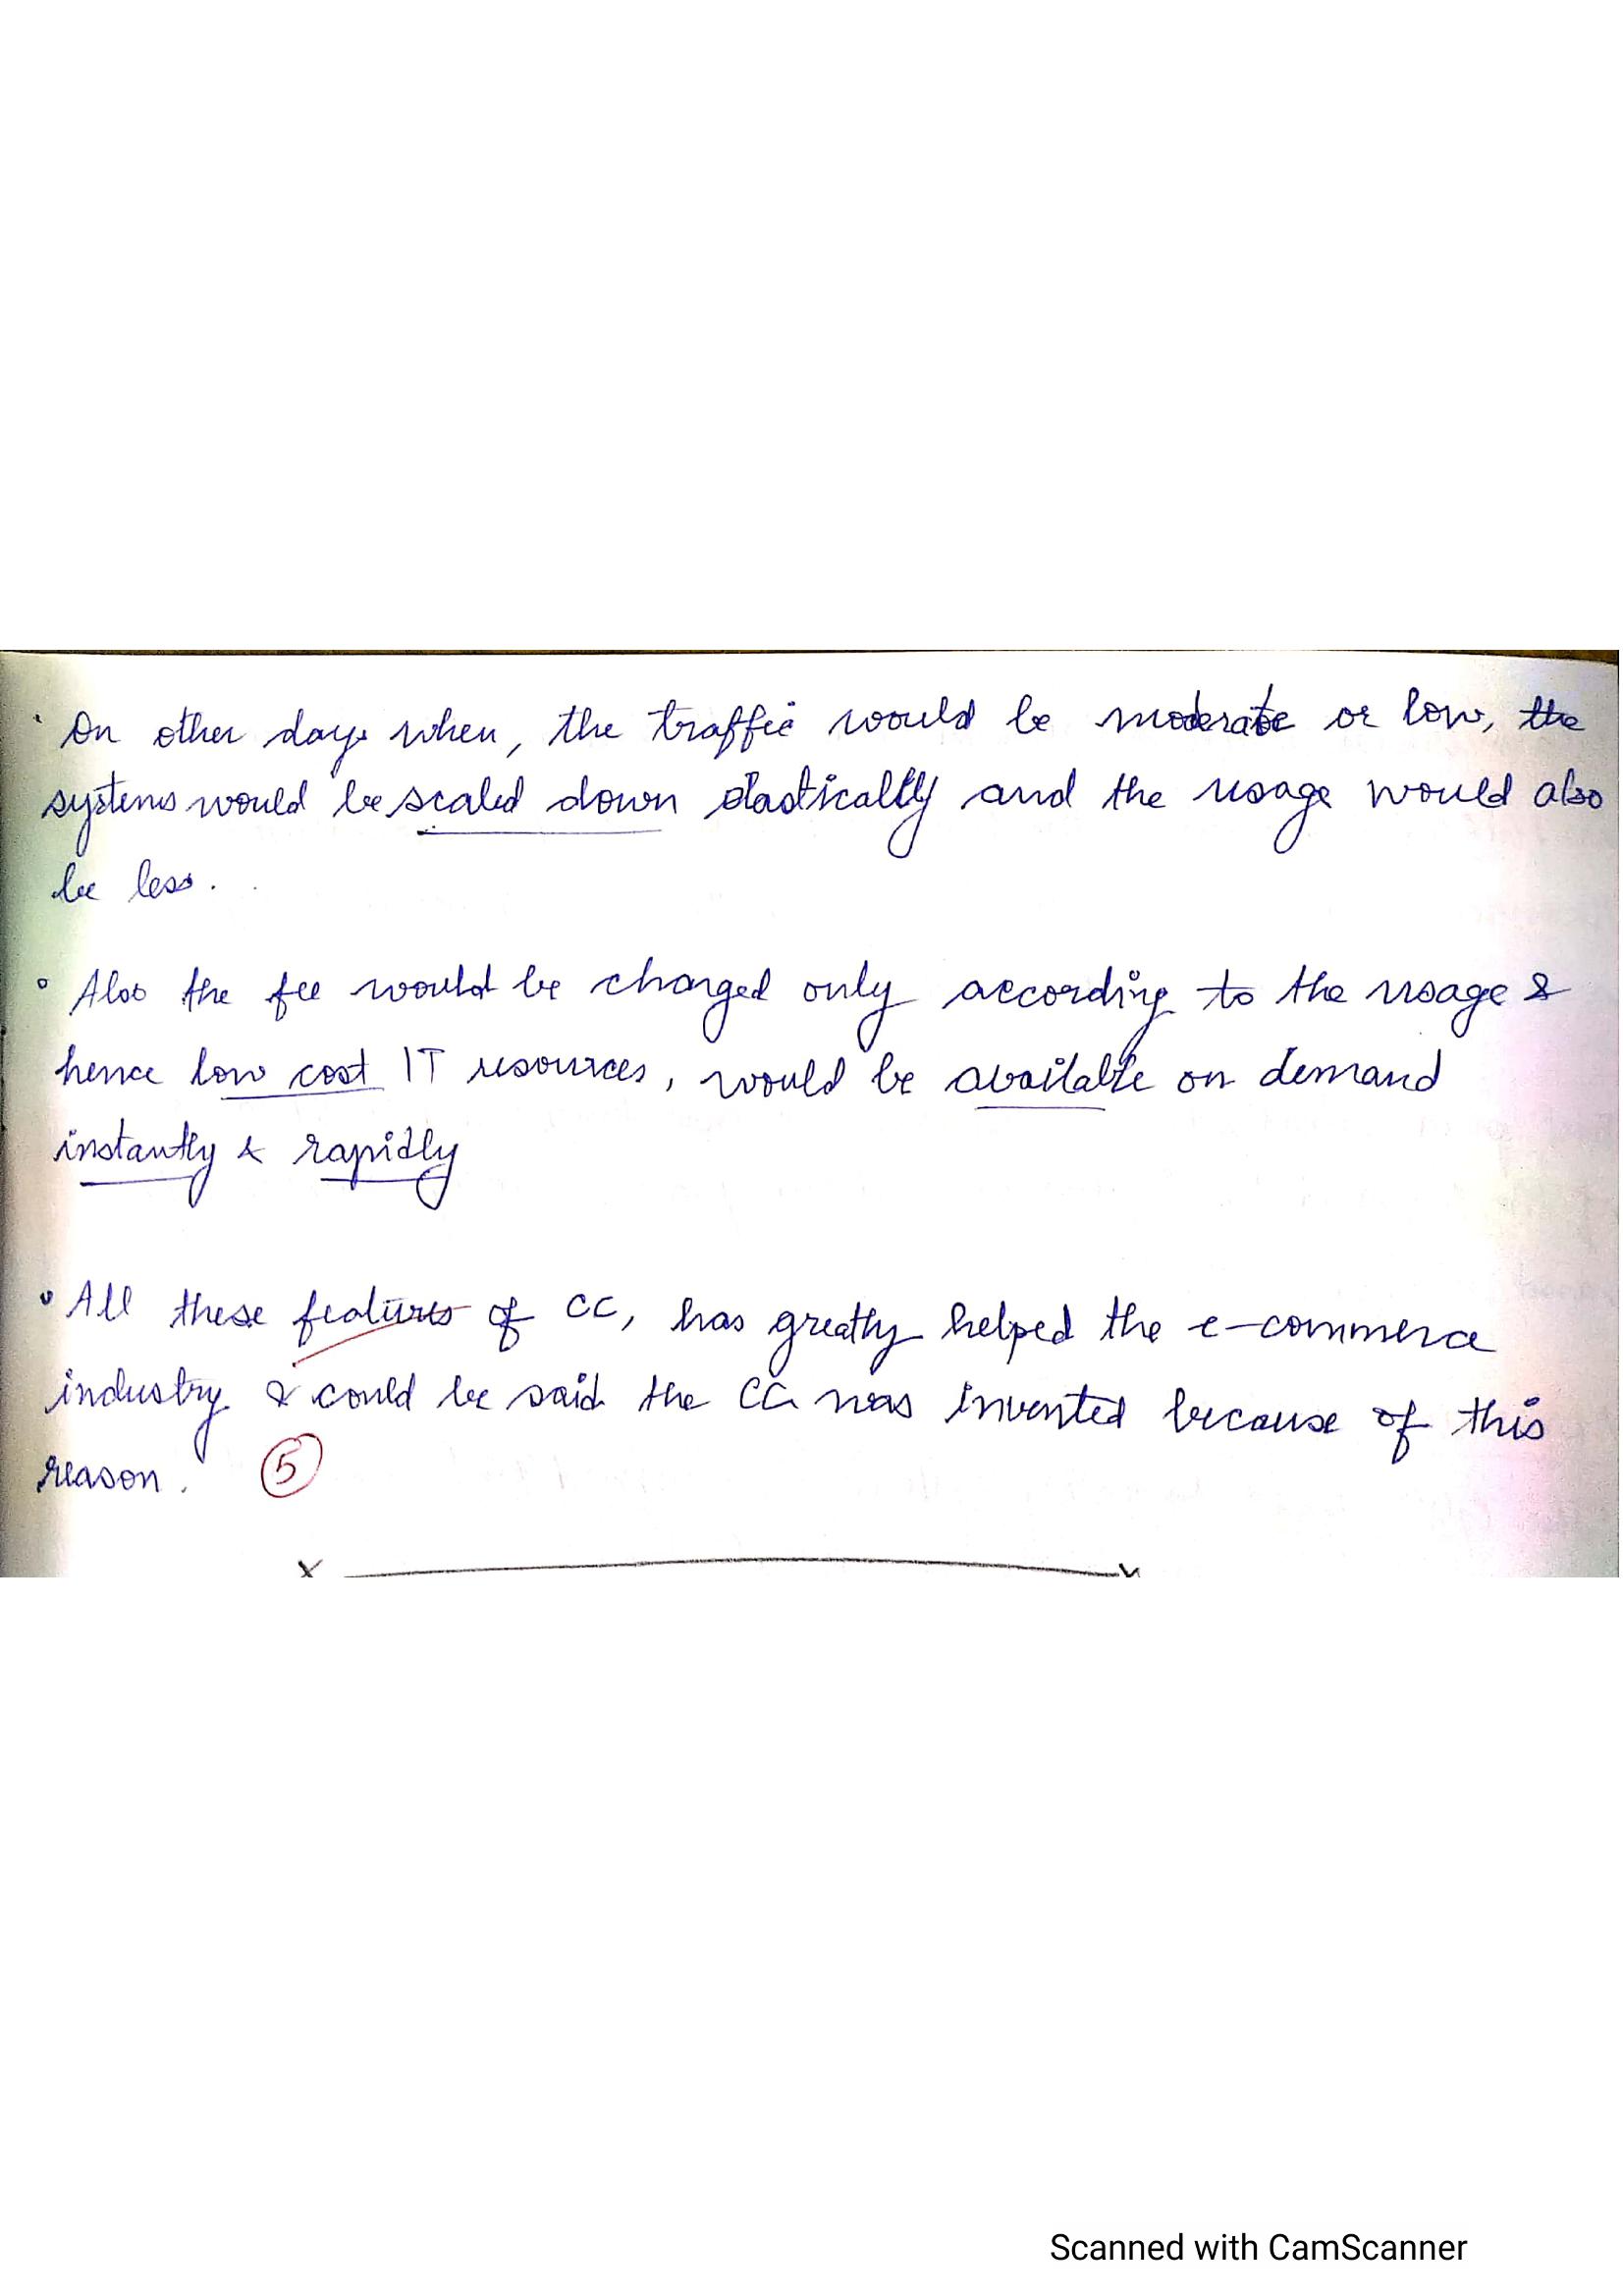 • On other days when, the traffic would be moderate or low, the
systems would be scaled down elastically and the usage would also
be less.
• Also the fee would be charged only according to the usage &
hence low cost IT resources, would be available on demand
instantly & rapidly
• All these features of CC, has greatly helped the e-commerce
industry & could be said the CC was invented because of this
reason. 5
x x
Scanned with CamScanner